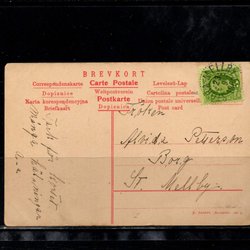 BREVKORT
Correspondenskarte Carte Postale Levelezö-Lap
Dopisnice Weltpostverein Cartolina postale
Karta korespondencyjna Postkarte Union postale universelle
Briefkaart Dopisnice Post card
Fröken
Alvida Peterson
Borg
St. Mellby
Tack för kortet
Många hälsningar